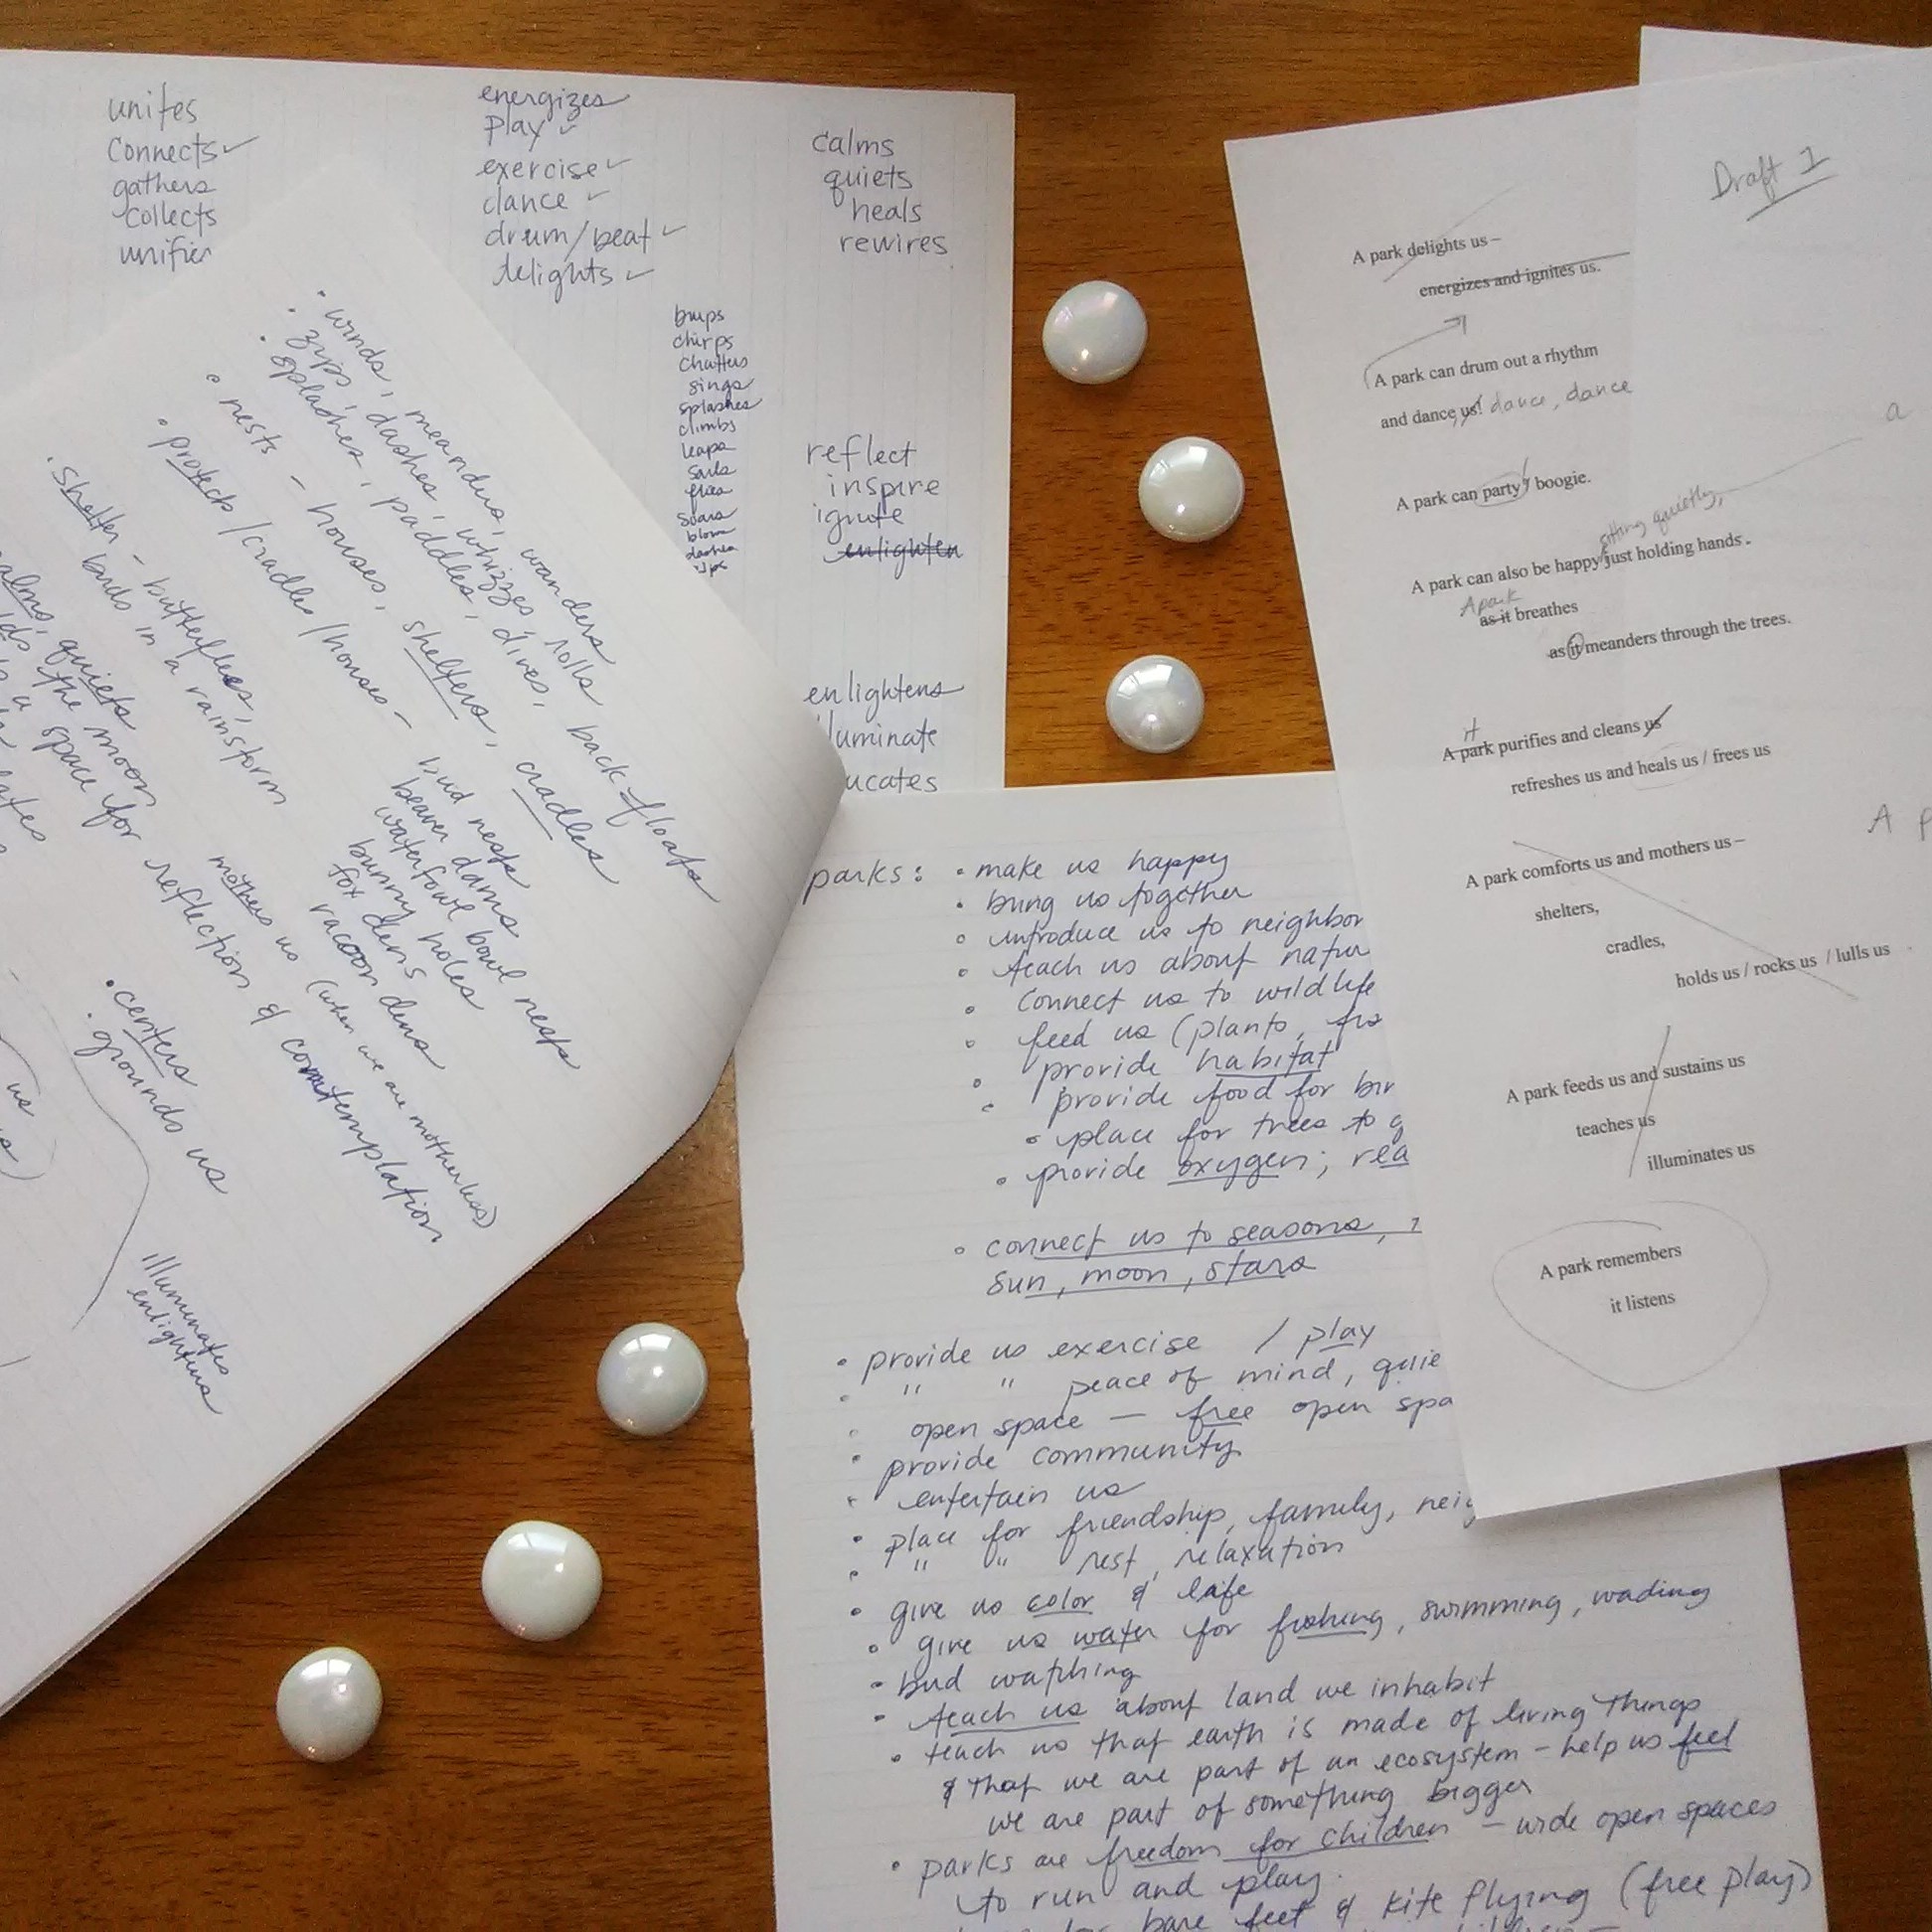 unites
connects ✓
gathers
collects
unifies
energizes
play ✓
exercise ✓
dance ✓
drum/beat ✓
delights ✓
calms
quiets
heals
rewires
burps
chirps
chatters
sings
splashes
climbs
leaps
sails
flies
soars
blows
dashes
reflect
inspire
ignite
enlighten
enlightens
luminate
ucates
• winds, meanders, wanders
• zips, dashes, whizzes, rolls
• splashes, paddles, dives, back-floats
• nests – houses, shelters, cradles
• protects/cradles/houses –
bird nests
beaver dams
waterfowl bowl nests
bunny holes
fox dens
racoon dens
• shelter – butterflies,
birds in a rainstorm
mothers us (when we are motherless)
alms, quiets
lds the moon
a space for reflection & contemplation
• centers
• grounds us
us
illuminates
enlightens
parks: • make us happy
• bring us together
• introduce us to neighbor
• teach us about natur
• connect us to wildlife
• feed us (plants,
• provide habitat
• provide food for bir
• place for trees to g
• provide oxygen; rea
• connect us to seasons,
sun, moon, stars
• provide us exercise / play
• " " peace of mind, quie
• open space – free open spa
• provide community
• entertain us
• place for friendship, family, neig
• " " rest, relaxation
• give us color & life
• give us water for fishing, swimming, wading
• bird watching
• teach us about land we inhabit
• teach us that earth is made of living things
& that we are part of an ecosystem – help us feel
we are part of something bigger
• parks are freedom for children – wide open spaces
to run and play.
bare feet & kite flying (free play)
Draft 1
A park delights us –
energizes and ignites us.
A park can drum out a rhythm
and dance us! dance, dance
A park can party! boogie.
sitting quietly,
a
A park can also be happy just holding hands.
A park
as it breathes
as it meanders through the trees.
It
A park purifies and cleans us
refreshes us and heals us / frees us
A p
A park comforts us and mothers us –
shelters,
cradles,
holds us / rocks us / lulls us
A park feeds us and sustains us
teaches us
illuminates us
A park remembers
it listens